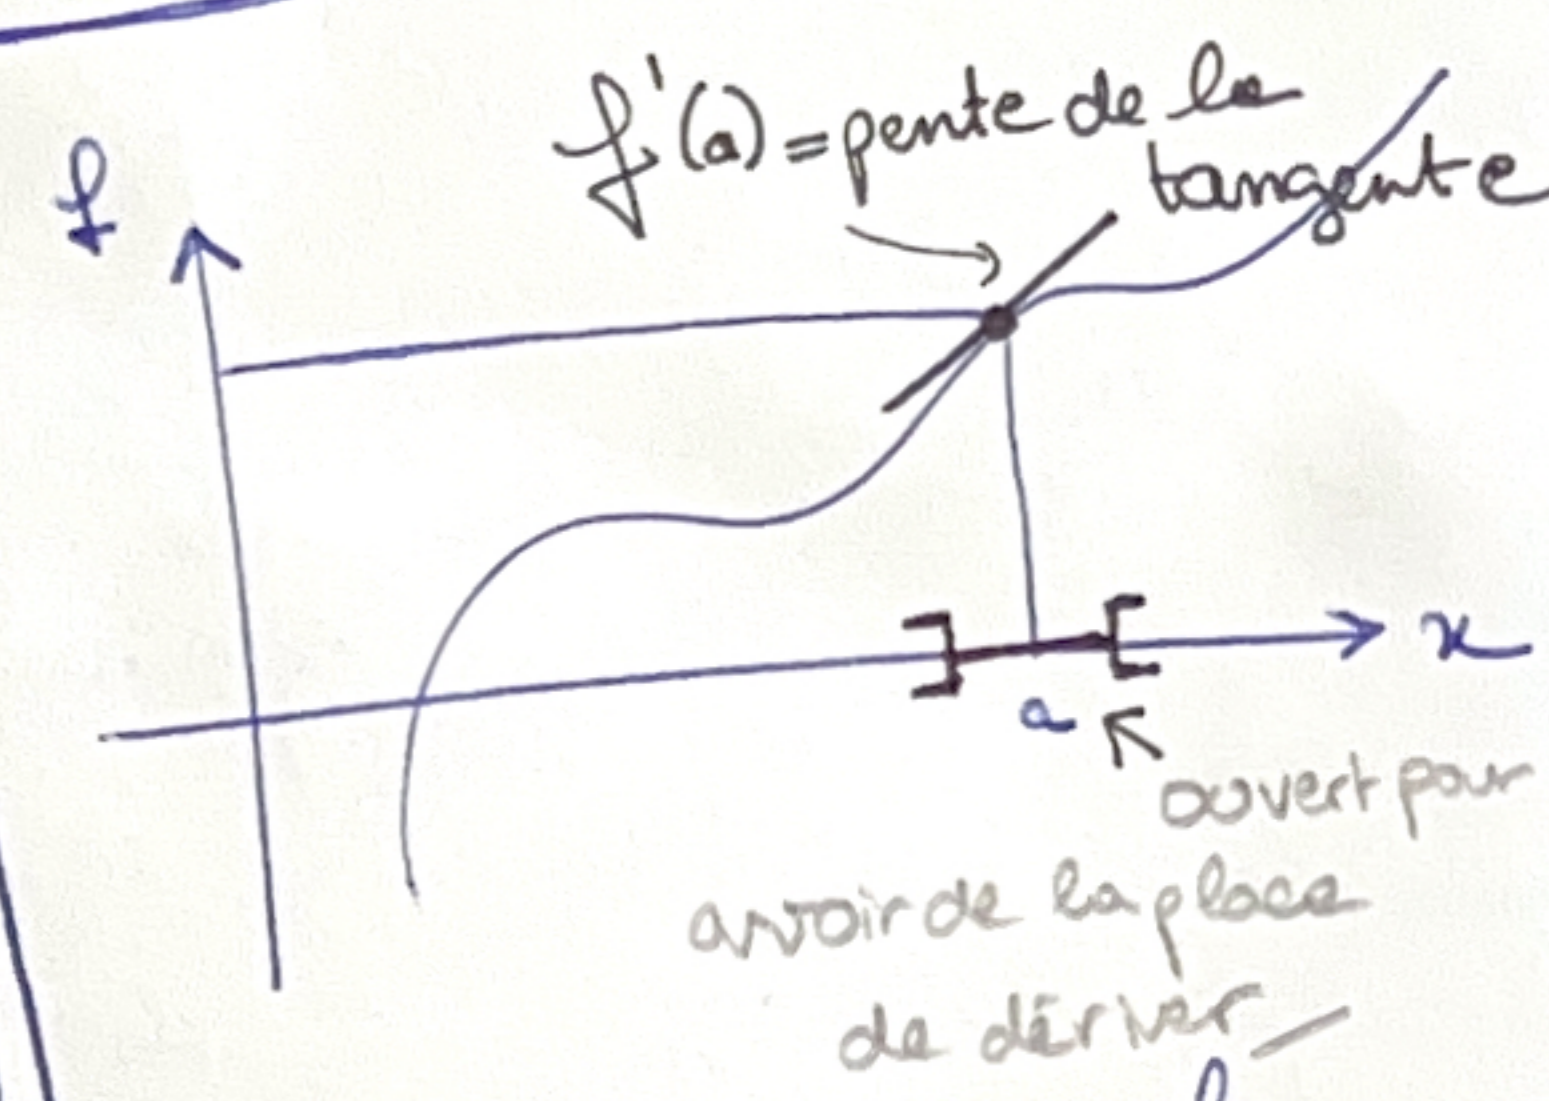 f'(a) = pente de la
tangente
f
x
a
ouvert pour
avoir de la place
de dériver